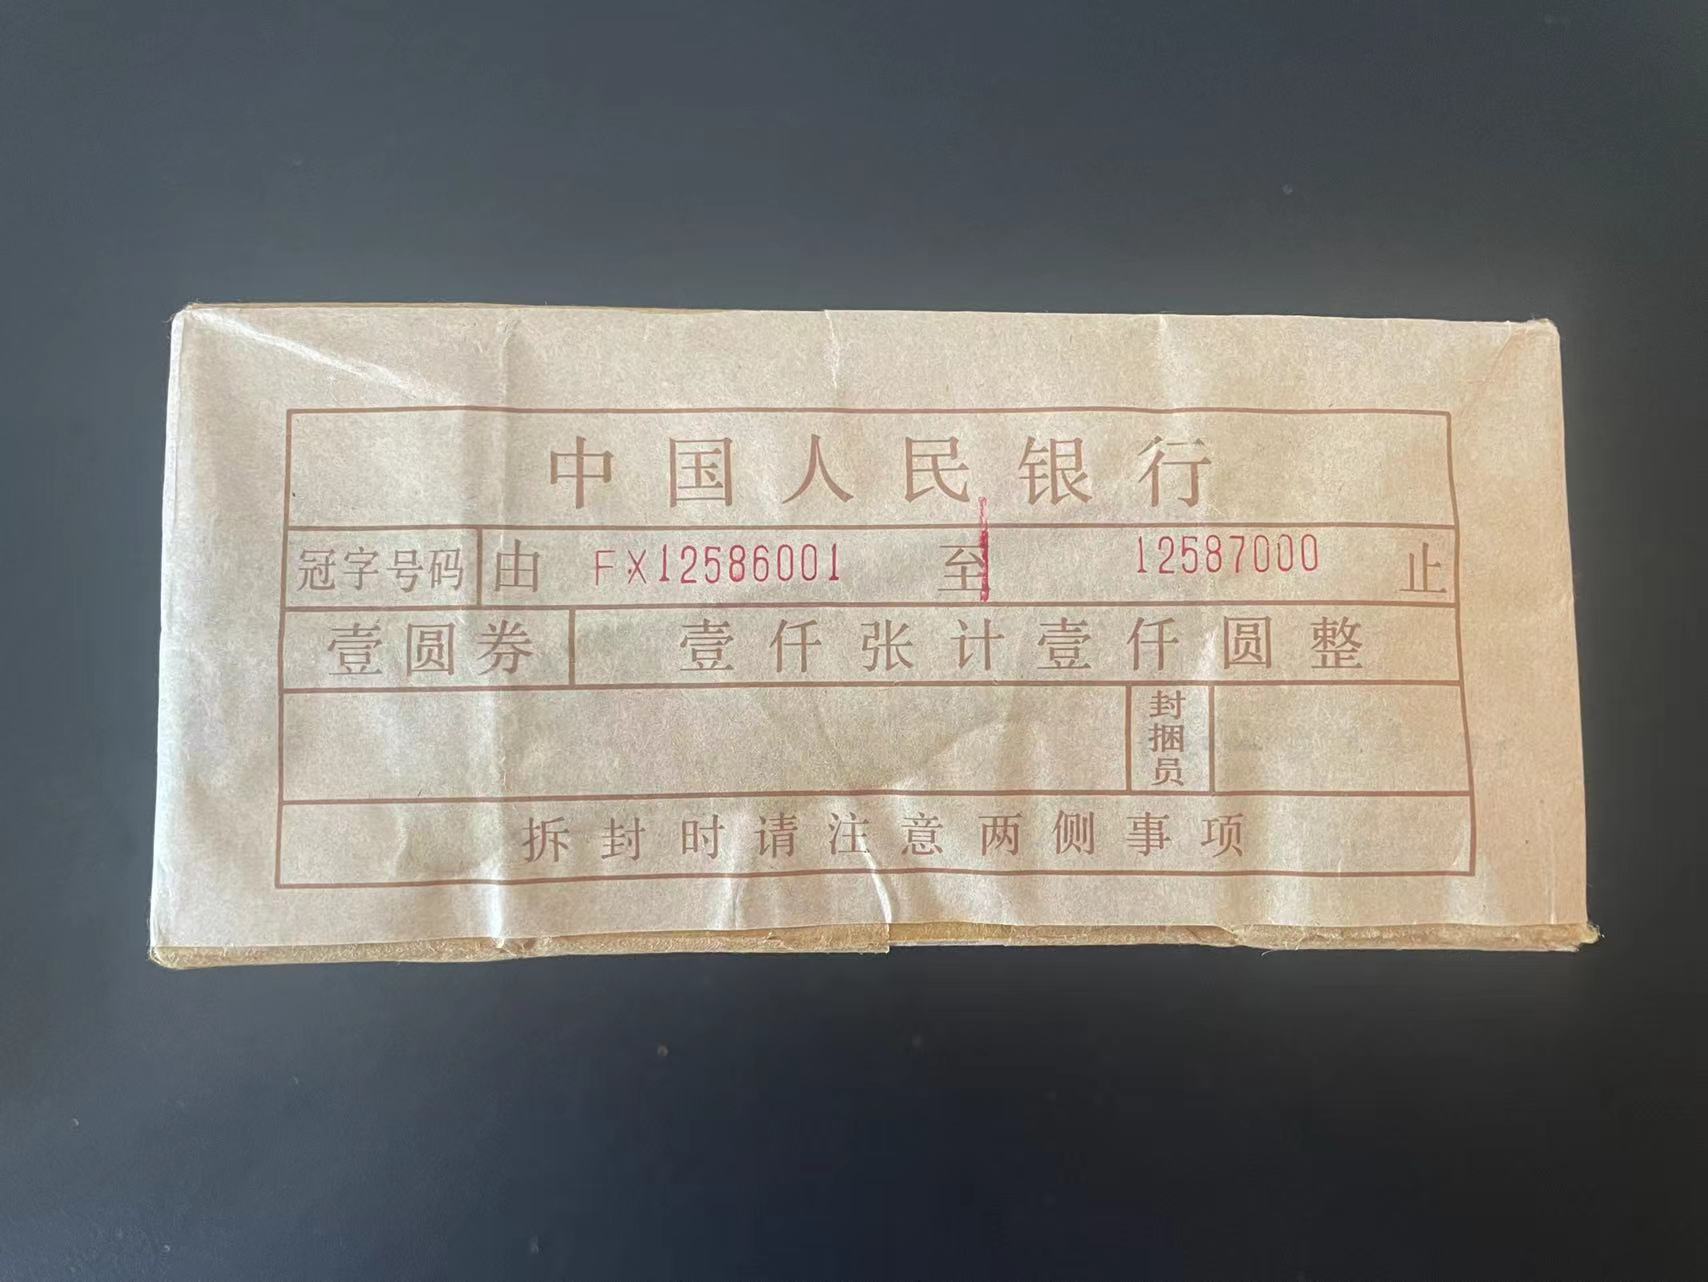 中国人民银行
冠字号码 由 FX12586001 至 12587000 止
壹圆券 壹仟张计壹仟圆整
封捆员
拆封时请注意两侧事项